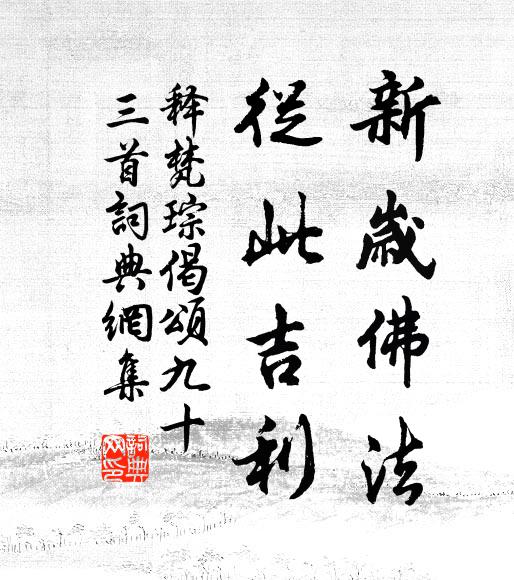 新歲佛法
從此吉利
释梵琮偈頌九十
三首詞典網集
詞典
网印